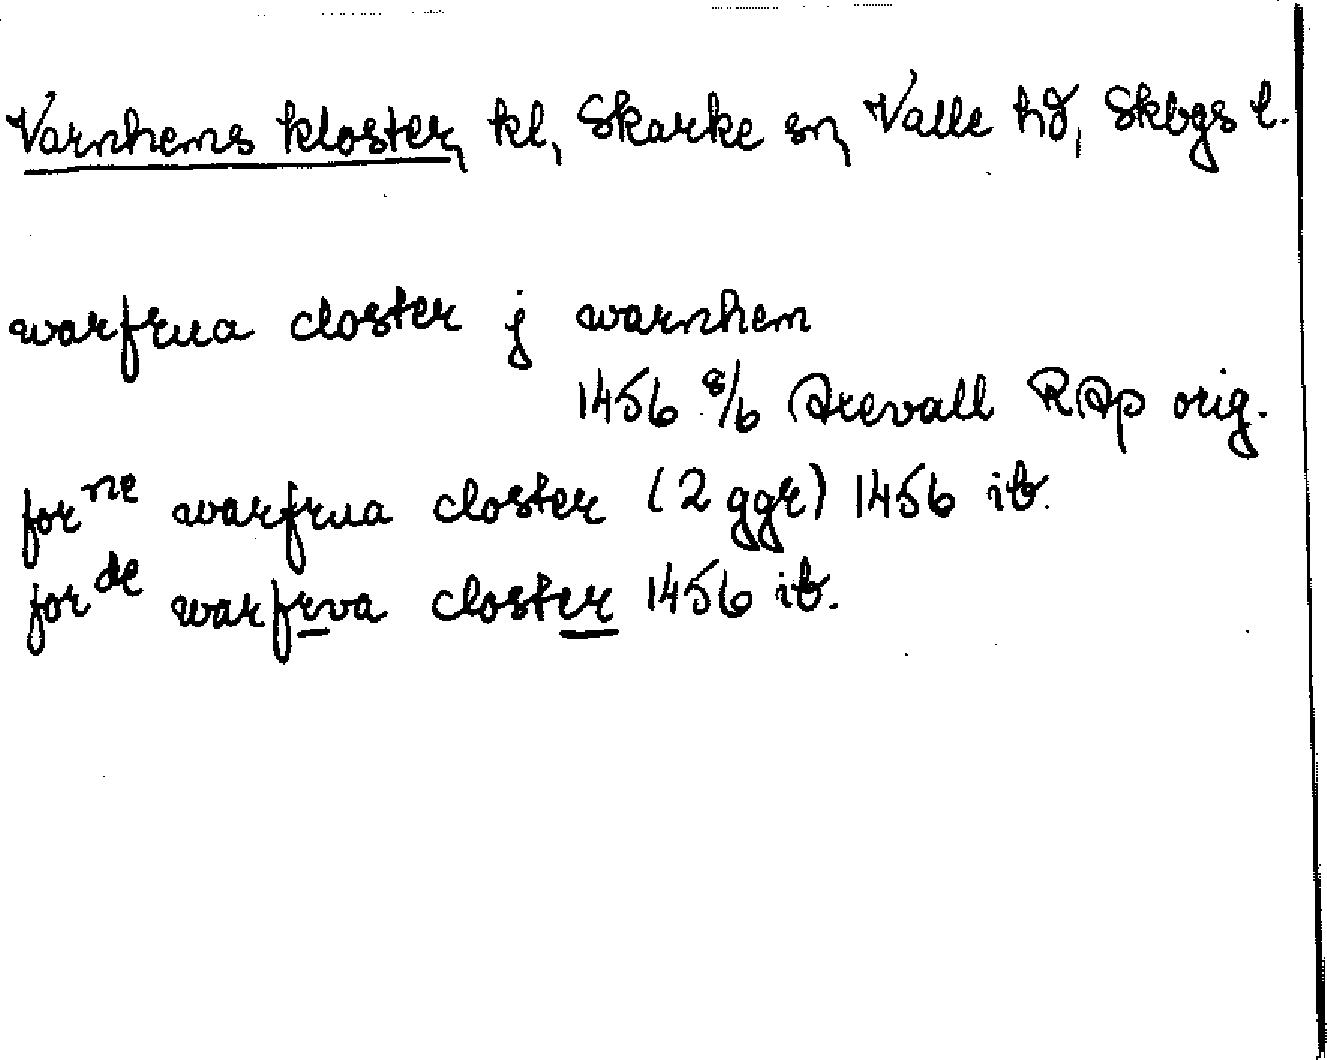 Varnhems kloster, kl, Skarke sn, Valle hd, Skbgs l.
warfrua closter j warnhem
1456 8/6 Arevall RAp orig.
for ne warfrua closter (2 ggr) 1456 ib.
for de warfrva closter 1456 ib.